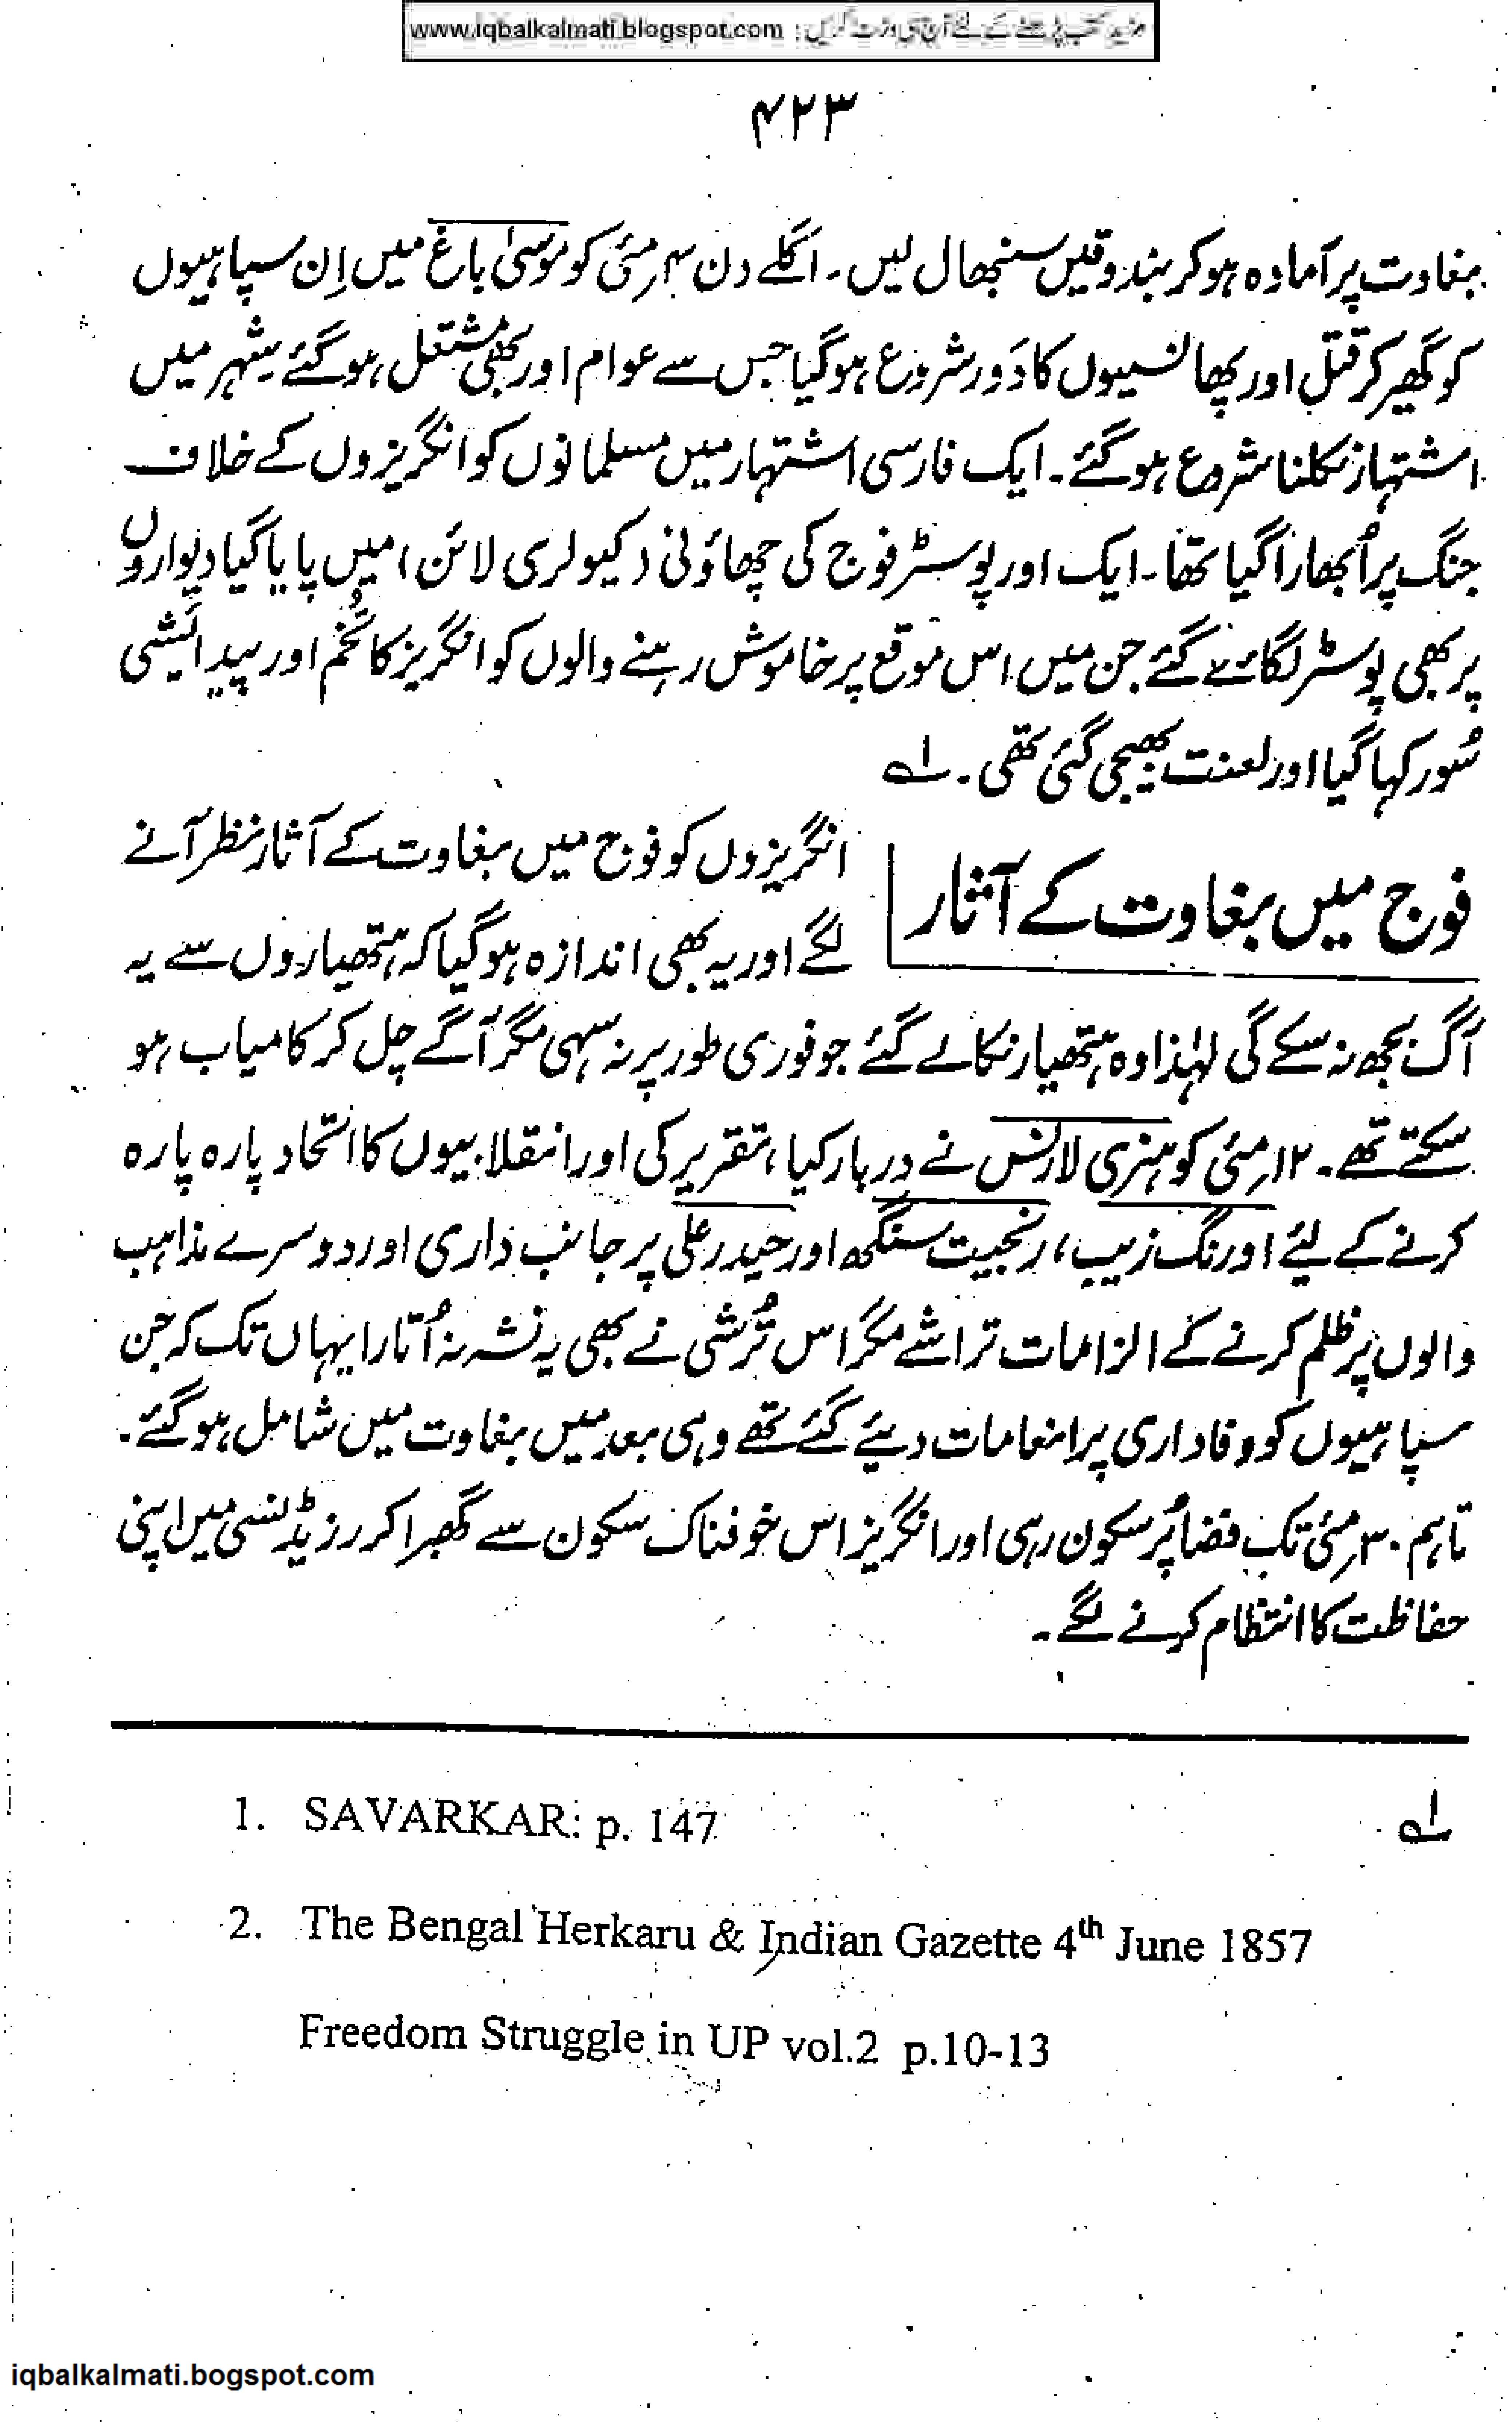 مزید کتب پڑھنے کے لئے آج ہی وزٹ کریں : www.iqbalkalmati.blogspot.com
۴۲۳
بغاوت پر آمادہ ہو کر بندوقیں سنبھال لیں۔ اگلے دن ۴ مئی کو موسیٰ باغ میں اِن سپاہیوں
کو گھیر کر قتل اور پھانسیوں کا دَور شروع ہو گیا جس سے عوام اور بھی مشتعل ہو گئے۔ شہر میں
اشتہار نکلنا شروع ہو گئے۔ ایک فارسی اشتہار میں مسلمانوں کو انگریزوں کے خلاف
جنگ پر اُبھارا گیا تھا۔ ایک اور پوسٹر فوج کی چھاؤنی (کیولری لائن) میں پایا گیا دیواروں
پر بھی پوسٹر لگائے گئے جن میں اس موقع پر خاموش رہنے والوں کو انگریز کا تُخم اور پیدائشی
سُور کہا گیا اور لعنت بھیجی گئی تھی۔ ۱ے
فوج میں بغاوت کے آثار
انگریزوں کو فوج میں بغاوت کے آثار نظر آنے
لگے اور یہ بھی اندازہ ہو گیا کہ ہتھیاروں سے یہ
آگ بجھ نہ سکے گی لہٰذا وہ ہتھیار نکالے گئے جو فوری طور پر نہ سہی مگر آگے چل کر کامیاب ہو
سکتے تھے۔ ۱۲ مئی کو ہنری لارنس نے دربار کیا، تقریر کی اور انقلابیوں کا اتحاد پارہ پارہ
کرنے کے لیئے اورنگ زیب، رنجیت سنگھ اور حیدر علی پر جانب داری اور دوسرے مذاہب
والوں پر ظلم کرنے کے الزامات تراشے مگر اس تُرشی نے بھی یہ نشہ نہ اُتارا یہاں تک کہ جن
سپاہیوں کو وفاداری پر انعامات دیئے گئے تھے وہی بعد میں بغاوت میں شامل ہو گئے۔
تاہم ۳۰ مئی تک فضا پُر سکون رہی اور انگریز اس خوفناک سکون سے گھبرا کر رزیڈنسی میں اپنی
حفاظت کا انتظام کرنے لگے۔
۱ے 1. SAVARKAR: p. 147
2. The Bengal Herkaru & Indian Gazette 4th June 1857
Freedom Struggle in UP vol.2 p.10-13
iqbalkalmati.bogspot.com